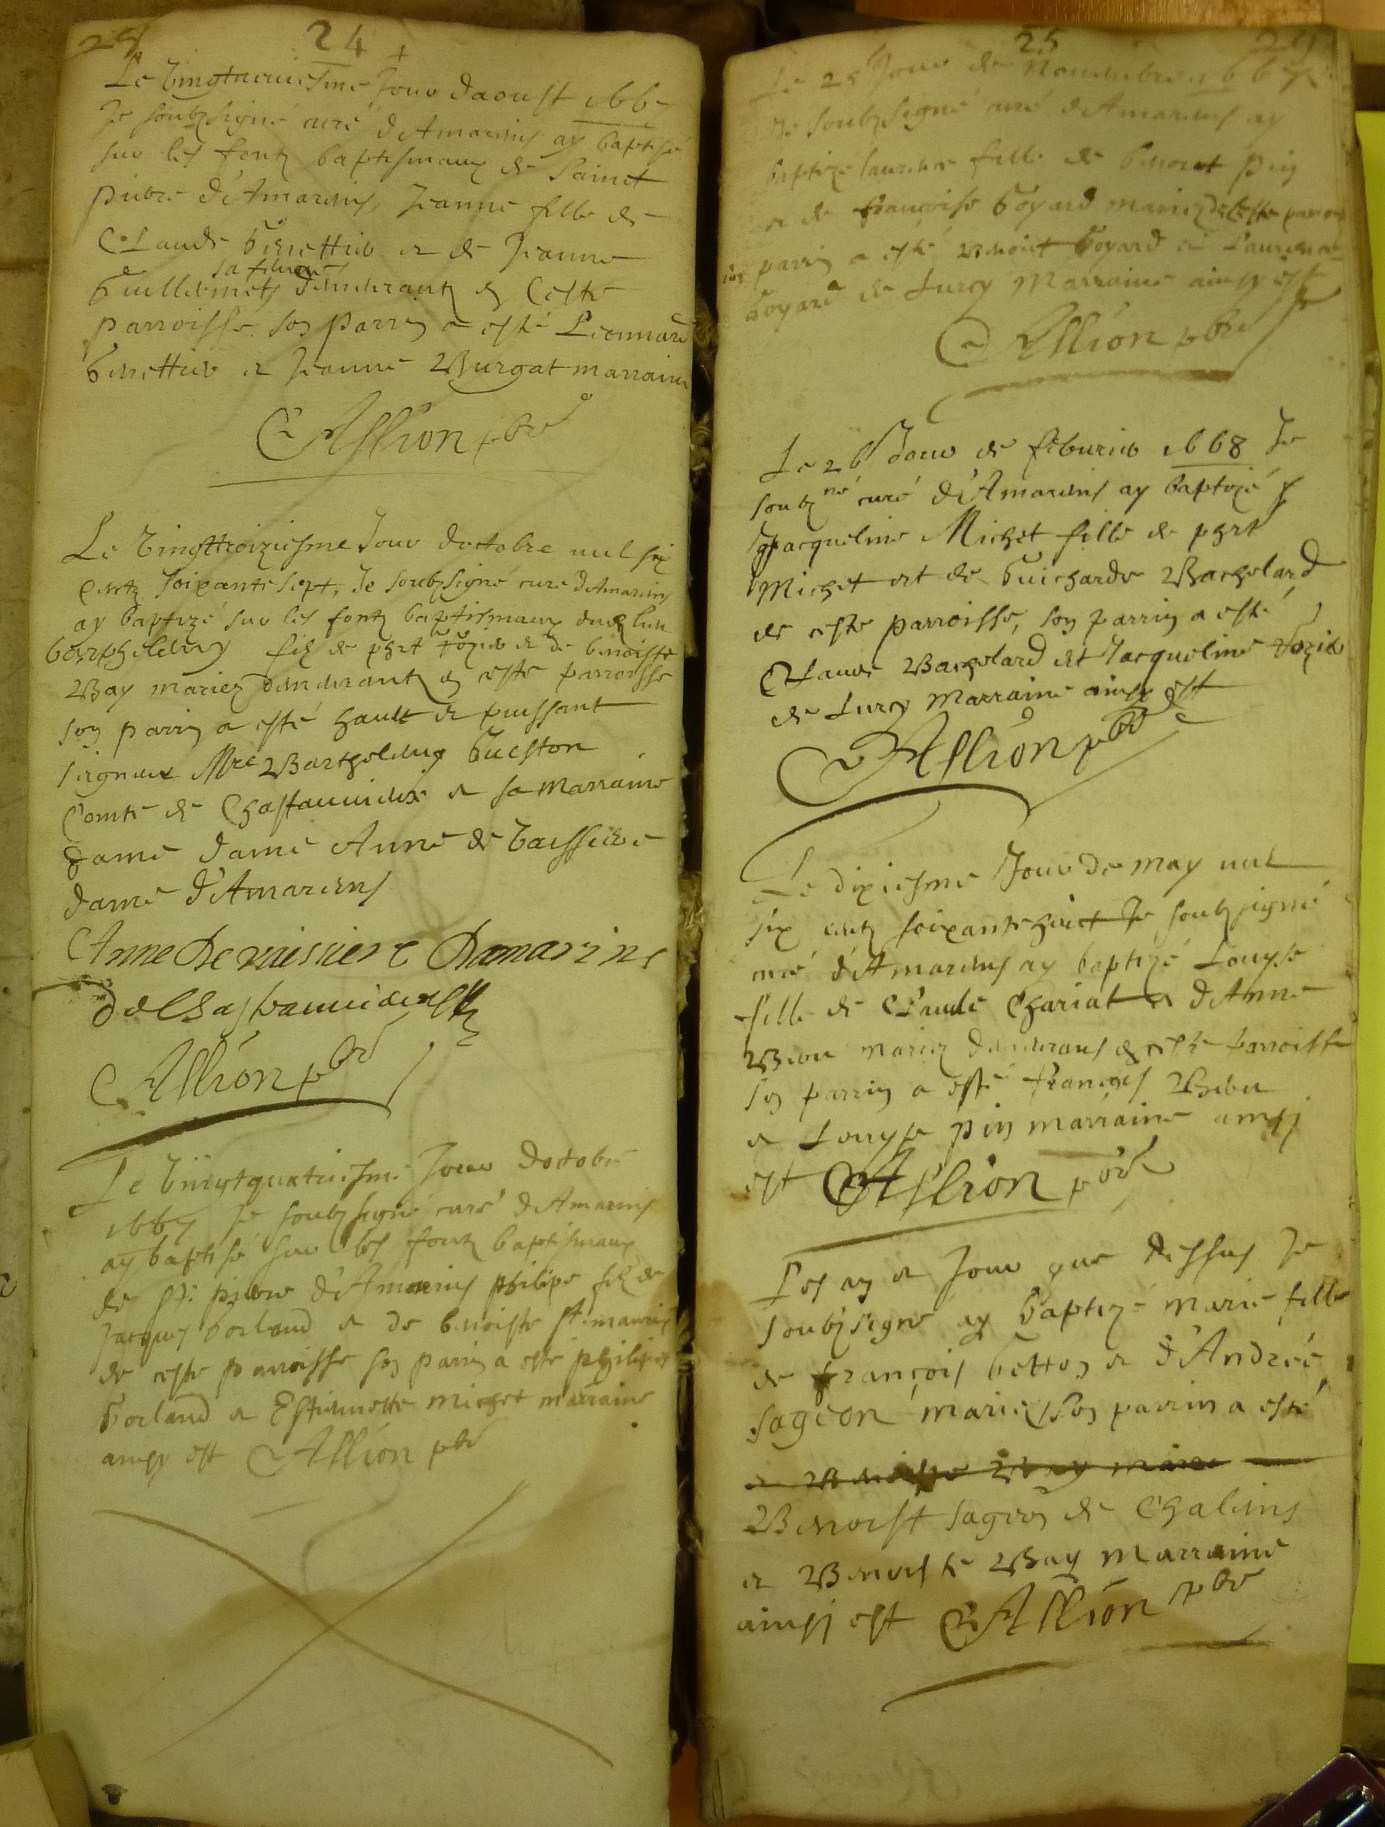 24
Le vingtneuviesme Jour daoust 166
Je soubsigné curé d'Amareins ay baptisé
sur les fontz baptismaux de Sainct
pierre d'Amareins, Jeanne fille de
Claude et de Jeanne
sa femme
demeurantz en ceste
parroisse son parrin a esté Leonnard
et Jeanne Burgat marraine
Allion pbre
Le vingttroiziesme Jour doctobre mil six
centz soixante sept, Je soubsigné curé d'Amareins
ay baptizé sur les fontz baptismaux
filz de phrt et de benoiste
Bay mariez demeurantz en ceste parroisse
son parrin a esté hault et puissant
seigneur Mre Bartholemy
Comte de et sa marraine
dame Anne de
dame d'Amareins
Anne De
Allion pbre
Le vingtquatriesme Jour doctobre
1667 Je soubsigné curé d'Amareins
ay baptisé sur les fontz baptismaux
de St pierre d'Amareins philipe filz de
Jacques gorland et de benoiste
de ceste parroisse son parrin a esté philipe
gorland et Estiennette michet marraine
ainsy est Allion pbre
25
Le 25 Jour de Novembre 1667
Je soubsigné curé d'Amareins ay
baptizé laurence fille de benoit pin
et de françoise goyard mariez de ceste parroisse
son parrin a esté benoit goyard et Laurence
goyard de Lurcy Marraine ainsy est
Allion pbre
Le 26 Jour de feburier 1668 Je
soubzné curé d'Amareins ay baptizé
Jacqueline Michet fille de phrt
Michet et de Guicharde Bachelard
de ceste parroisse, son parrin a esté
Claude Bachelard et Jacqueline
de Lurcy Marraine ainsy est
Allion pbre
Le dixiesme Jour de may mil
six centz soixantehuict Je soubsigné
curé d'Amareins ay baptizé Louyse
fille de Claude Chariat et d'Anne
mariez demeurans en ceste parroisse
son parrin a esté françois
et Louyse pin marraine ainsy
est Allion pbre
Les an et Jour que dessus Je
soubzsigné ay baptizé marie fille
de françois betton et d'Andrée
sageon mariez son parrin a esté
Benoist sageon de Chaleins
et Benoiste Bay Marraine
ainsy est Allion pbre